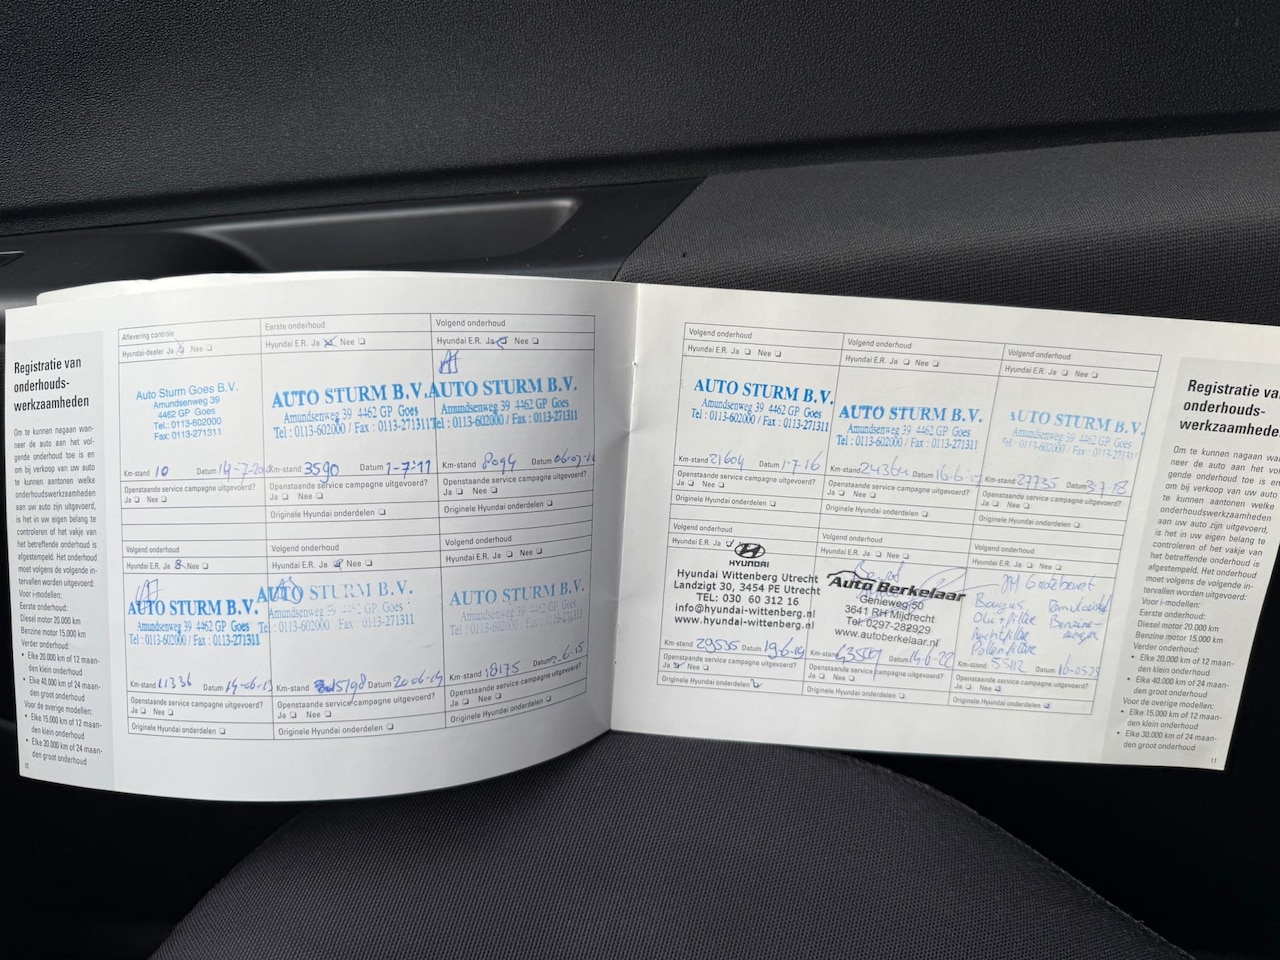 Registratie van
onderhouds-
werkzaamheden
Om te kunnen nagaan wan-
neer de auto aan het vol-
gende onderhoud toe is en
om bij verkoop van uw auto
te kunnen aantonen welke
onderhoudswerkzaamheden
aan uw auto zijn uitgevoerd,
is het in uw eigen belang te
controleren of het vakje van
het betreffende onderhoud is
afgestempeld. Het onderhoud
moet volgens de volgende in-
tervallen worden uitgevoerd:
Voor i-modellen:
Eerste onderhoud:
Diesel motor 20.000 km
Benzine motor 15.000 km
Verder onderhoud:
• Elke 20.000 km of 12 maan-
den klein onderhoud
• Elke 40.000 km of 24 maan-
den groot onderhoud
Voor de overige modellen:
• Elke 15.000 km of 12 maan-
den klein onderhoud
• Elke 30.000 km of 24 maan-
den groot onderhoud
10
Aflevering controle
Hyundai-dealer Ja Nee
Auto Sturm Goes B.V.
Amundsenweg 39
4462 GP Goes
Tel.: 0113-602000
Fax: 0113-271311
Km-stand 10 Datum 14-7-20
Openstaande service campagne uitgevoerd?
Ja Nee
Eerste onderhoud
Hyundai E.R. Ja Nee
AUTO STURM B.V.
Amundsenweg 39 4462 GP Goes
Tel : 0113-602000 / Fax : 0113-271311
Km-stand 3590 Datum 1-7-11
Openstaande service campagne uitgevoerd?
Ja Nee
Originele Hyundai onderdelen
Volgend onderhoud
Hyundai E.R. Ja Nee
AUTO STURM B.V.
Amundsenweg 39 4462 GP Goes
Tel : 0113-602000 / Fax : 0113-271311
Km-stand 8094 Datum
Openstaande service campagne uitgevoerd?
Ja Nee
Originele Hyundai onderdelen
Volgend onderhoud
Hyundai E.R. Ja Nee
AUTO STURM B.V.
Amundsenweg 39 4462 GP Goes
Tel : 0113-602000 / Fax : 0113-271311
Km-stand 11336 Datum 14-06-13
Openstaande service campagne uitgevoerd?
Ja Nee
Originele Hyundai onderdelen
Volgend onderhoud
Hyundai E.R. Ja Nee
AUTO STURM B.V.
Amundsenweg 39 4462 GP Goes
Tel : 0113-602000 / Fax : 0113-271311
Km-stand 15198 Datum 20-06-14
Openstaande service campagne uitgevoerd?
Ja Nee
Originele Hyundai onderdelen
Volgend onderhoud
Hyundai E.R. Ja Nee
AUTO STURM B.V.
Amundsenweg 39 4462 GP Goes
Tel : 0113-602000 / Fax : 0113-271311
Km-stand 18175 Datum
Openstaande service campagne uitgevoerd?
Ja Nee
Originele Hyundai onderdelen
Volgend onderhoud
Hyundai E.R. Ja Nee
AUTO STURM B.V.
Amundsenweg 39 4462 GP Goes
Tel : 0113-602000 / Fax : 0113-271311
Km-stand 21604 Datum 1-7-16
Openstaande service campagne uitgevoerd?
Ja Nee
Originele Hyundai onderdelen
Volgend onderhoud
Hyundai E.R. Ja Nee
AUTO STURM B.V.
Amundsenweg 39 4462 GP Goes
Tel : 0113-602000 / Fax : 0113-271311
Km-stand Datum
Openstaande service campagne uitgevoerd?
Ja Nee
Originele Hyundai onderdelen
Volgend onderhoud
Hyundai E.R. Ja Nee
AUTO STURM B.V.
Amundsenweg 39 4462 GP Goes
Tel : 0113-602000 / Fax : 0113-271311
Km-stand 27735 Datum 3-7-18
Openstaande service campagne uitgevoerd?
Ja Nee
Originele Hyundai onderdelen
Volgend onderhoud
Hyundai E.R. Ja Nee
HYUNDAI
Hyundai Wittenberg Utrecht
Landzigt 30, 3454 PE Utrecht
TEL: 030 60 312 16
info@hyundai-wittenberg.nl
www.hyundai-wittenberg.nl
Km-stand 29535 Datum 19-6-19
Openstaande service campagne uitgevoerd?
Ja Nee
Originele Hyundai onderdelen
Volgend onderhoud
Hyundai E.R. Ja Nee
Auto Berkelaar
Genieweg 50
3641 RH Mijdrecht
Tel: 0297-282929
www.autoberkelaar.nl
Km-stand Datum 14-6-22
Openstaande service campagne uitgevoerd?
Ja Nee
Originele Hyundai onderdelen
Volgend onderhoud
Hyundai E.R. Ja Nee
Grote beurt
Bougies
Olie + filter Benzine-
Luchtfilter
Pollenfilter
Km-stand 55112 Datum 16-05-23
Openstaande service campagne uitgevoerd?
Ja Nee
Originele Hyundai onderdelen
Registratie van
onderhouds-
werkzaamheden
Om te kunnen nagaan wan-
neer de auto aan het vol-
gende onderhoud toe is en
om bij verkoop van uw auto
te kunnen aantonen welke
onderhoudswerkzaamheden
aan uw auto zijn uitgevoerd,
is het in uw eigen belang te
controleren of het vakje van
het betreffende onderhoud is
afgestempeld. Het onderhoud
moet volgens de volgende in-
tervallen worden uitgevoerd:
Voor i-modellen:
Eerste onderhoud:
Diesel motor 20.000 km
Benzine motor 15.000 km
Verder onderhoud:
• Elke 20.000 km of 12 maan-
den klein onderhoud
• Elke 40.000 km of 24 maan-
den groot onderhoud
Voor de overige modellen:
• Elke 15.000 km of 12 maan-
den klein onderhoud
• Elke 30.000 km of 24 maan-
den groot onderhoud
11